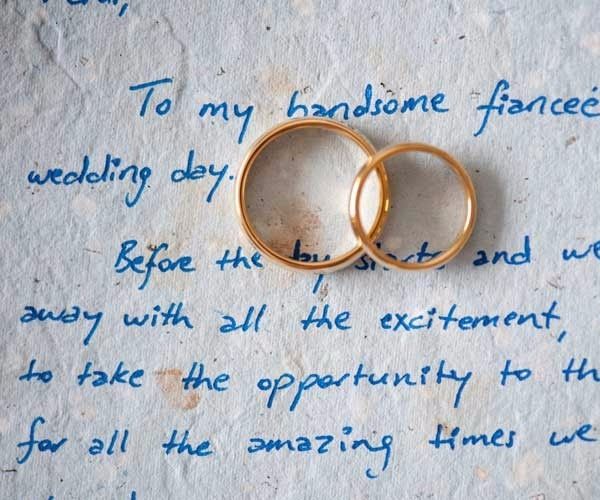 To my handsome fianceé
wedding day.
Before the and we
away with all the excitement,
to take the opportunity to th
for all the amazing times we